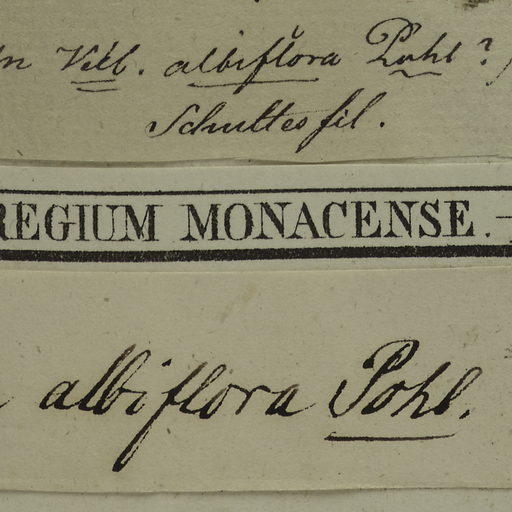 an Vell. albiflora Pohl?
Schultes fil.
REGIUM MONACENSE.
albiflora Pohl.